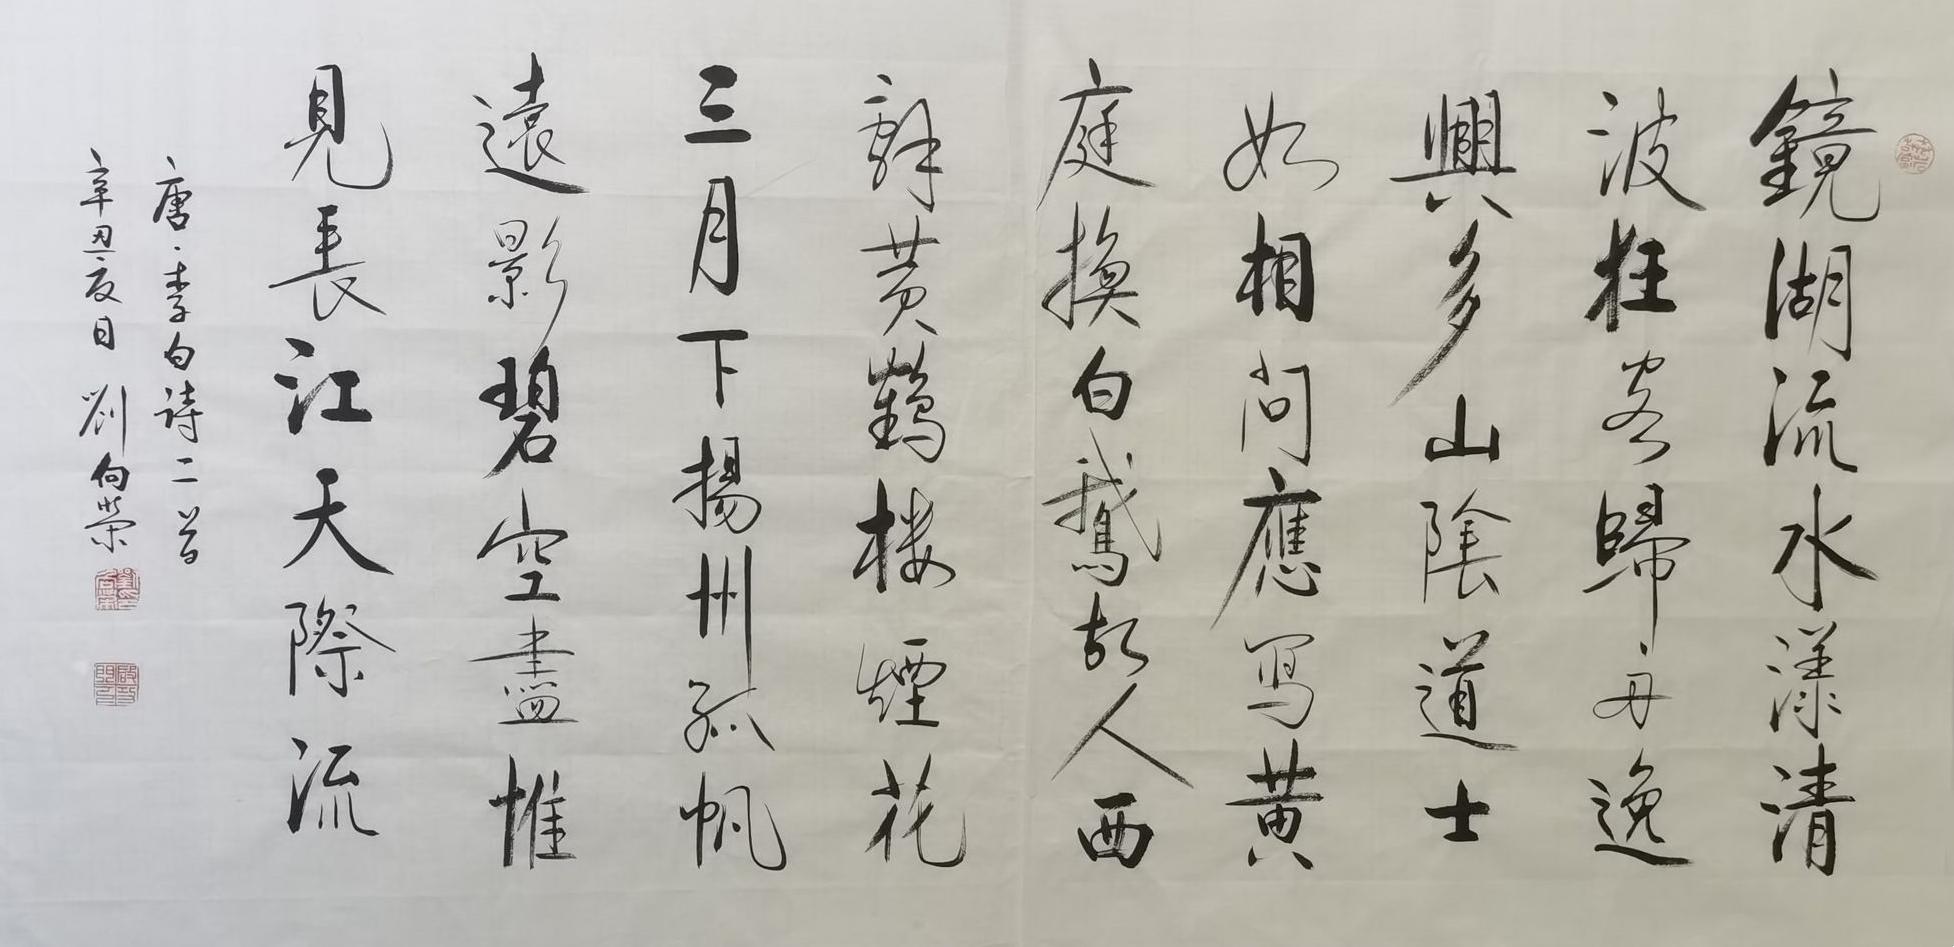 鏡湖流水漾清
波狂客歸舟逸
興多山陰道士
如相問應写黄
庭換白鵝故人西
辞黄鶴楼煙花
三月下揚州孤帆
遠影碧空盡惟
見長江天際流
唐·李白詩二首
辛丑夏日 劉向榮